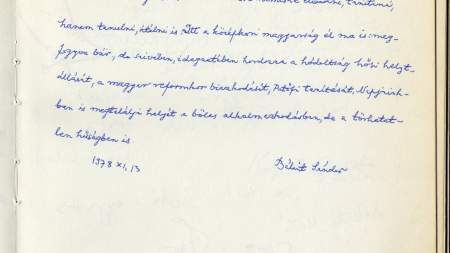 tanítani,
hanem tanulni, ítélni is. Itt a középkori magyarság él ma is meg-
fogyva bár, de szívében, idegzetében hordozza a hódoltság hősi helyt-
állását, a magyar reformkor bizakodását, Petőfi tanítását.
ben is megtalálja helyét a bölcs alkalmazkodásban, de a törhetet-
len hűségben is.
1978 XI. 13
Bálint Sándor